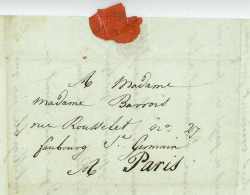 A Madame
Madame Barrois
rue Rousselet no. 27
faubourg St. Germain
A Paris